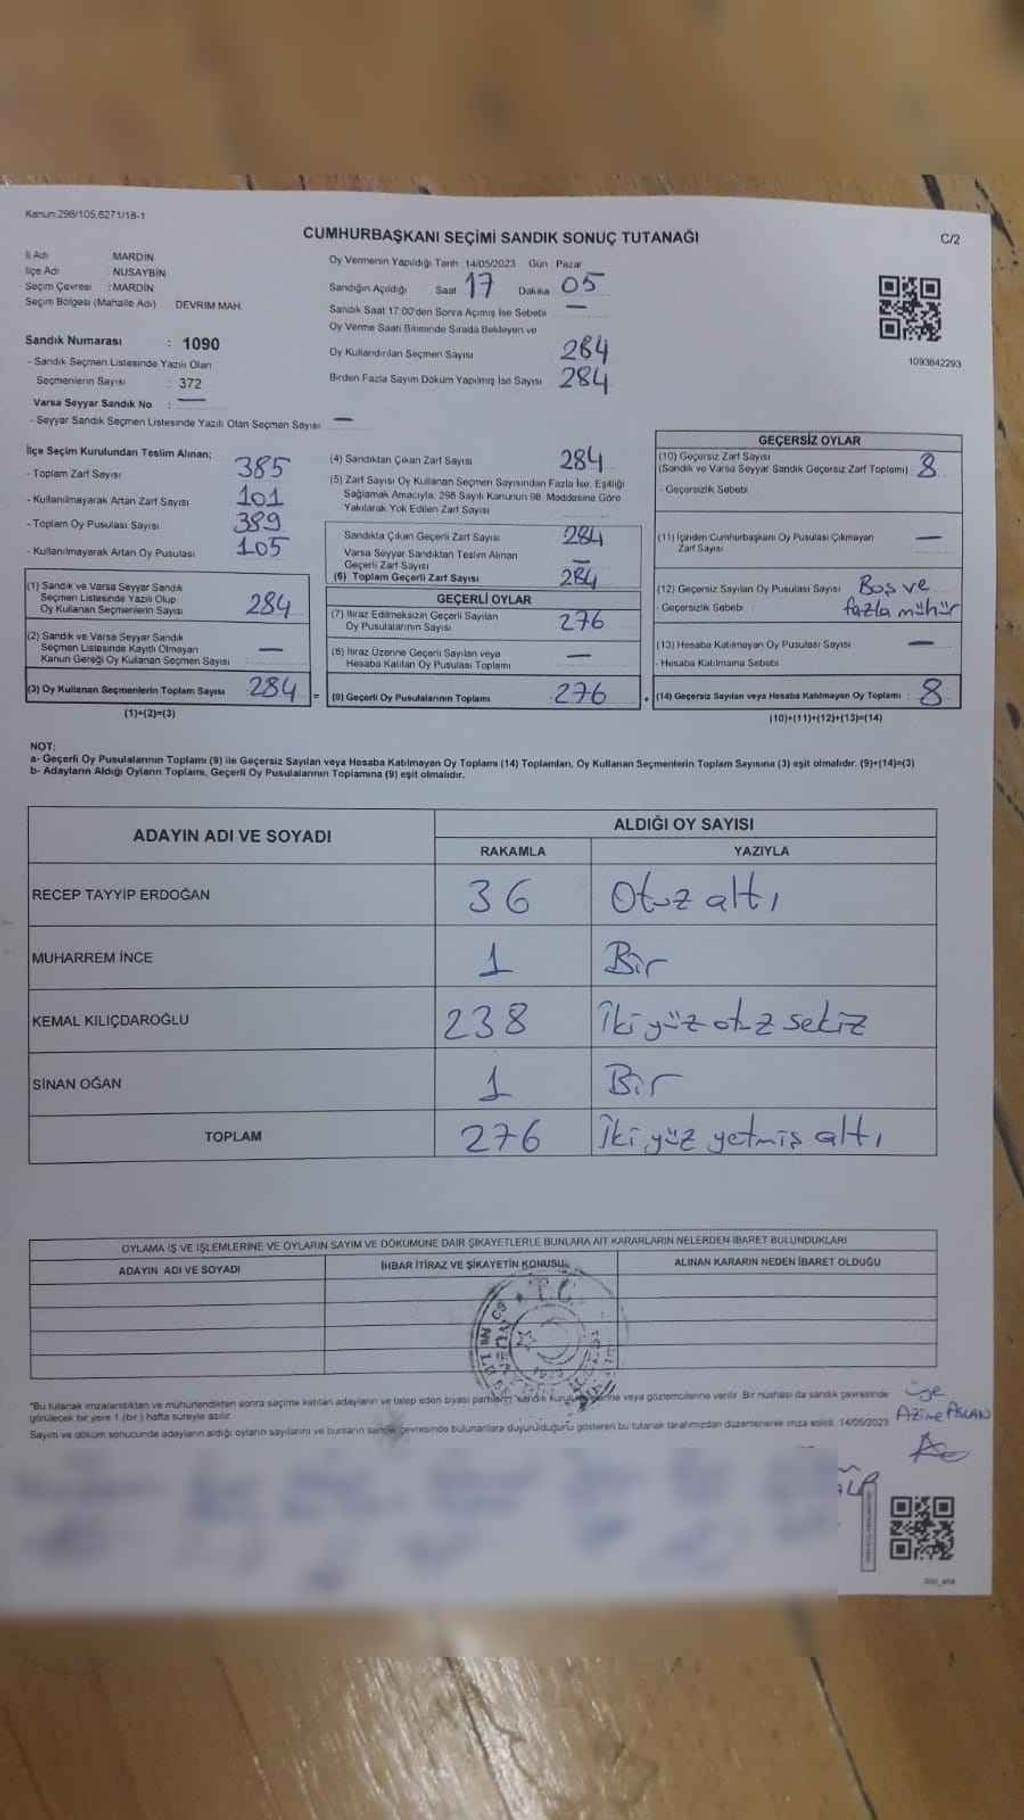 Kanun:298/105,6271/18-1
CUMHURBAŞKANI SEÇİMİ SANDIK SONUÇ TUTANAĞI
C/2
İl Adı MARDİN
İlçe Adı NUSAYBİN
Seçim Çevresi : MARDİN
Seçim Bölgesi (Mahalle Adı) DEVRİM MAH.
Sandık Numarası : 1090
- Sandık Seçmen Listesinde Yazılı Olan
Seçmenlerin Sayısı : 372
Varsa Seyyar Sandık No : —
- Seyyar Sandık Seçmen Listesinde Yazılı Olan Seçmen Sayısı —
Oy Vermenin Yapıldığı Tarih 14/05/2023 Gün : Pazar
Sandığın Açıldığı Saat 17 Dakika 05
Sandık Saat 17:00'den Sonra Açılmış İse Sebebi —
Oy Verme Saati Bitiminde Sırada Bekleyen ve
Oy Kullandırılan Seçmen Sayısı 284
Birden Fazla Sayım Döküm Yapılmış İse Sayısı 284
1093642293
İlçe Seçim Kurulundan Teslim Alınan;
- Toplam Zarf Sayısı 385
- Kullanılmayarak Artan Zarf Sayısı 101
- Toplam Oy Pusulası Sayısı 389
- Kullanılmayarak Artan Oy Pusulası 105
(1) Sandık ve Varsa Seyyar Sandık
Seçmen Listesinde Yazılı Olup
Oy Kullanan Seçmenlerin Sayısı 284
(2) Sandık ve Varsa Seyyar Sandık
Seçmen Listesinde Kayıtlı Olmayan
Kanun Gereği Oy Kullanan Seçmen Sayısı —
(3) Oy Kullanan Seçmenlerin Toplam Sayısı 284 =
(1)+(2)=(3)
(4) Sandıktan Çıkan Zarf Sayısı 284
(5) Zarf Sayısı Oy Kullanan Seçmen Sayısından Fazla İse, Eşitliği
Sağlamak Amacıyla, 298 Sayılı Kanunun 98. Maddesine Göre
Yakılarak Yok Edilen Zarf Sayısı
Sandıkta Çıkan Geçerli Zarf Sayısı 284
Varsa Seyyar Sandıktan Teslim Alınan
Geçerli Zarf Sayısı —
(6) Toplam Geçerli Zarf Sayısı 284
GEÇERLİ OYLAR
(7) İtiraz Edilmeksizin Geçerli Sayılan
Oy Pusulalarının Sayısı 276
(8) İtiraz Üzerine Geçerli Sayılan veya
Hesaba Katılan Oy Pusulası Toplamı —
(9) Geçerli Oy Pusulalarının Toplamı 276 +
GEÇERSİZ OYLAR
(10) Geçersiz Zarf Sayısı
(Sandık ve Varsa Seyyar Sandık Geçersiz Zarf Toplamı) 8
- Geçersizlik Sebebi
(11) İçinden Cumhurbaşkanı Oy Pusulası Çıkmayan
Zarf Sayısı —
(12) Geçersiz Sayılan Oy Pusulası Sayısı Boş ve
- Geçersizlik Sebebi fazla mühür
(13) Hesaba Katılmayan Oy Pusulası Sayısı —
- Hesaba Katılmama Sebebi
(14) Geçersiz Sayılan veya Hesaba Katılmayan Oy Toplamı : 8
(10)+(11)+(12)+(13)=(14)
NOT:
a- Geçerli Oy Pusulalarının Toplamı (9) ile Geçersiz Sayılan veya Hesaba Katılmayan Oy Toplamı (14) Toplamları, Oy Kullanan Seçmenlerin Toplam Sayısına (3) eşit olmalıdır. (9)+(14)=(3)
b- Adayların Aldığı Oyların Toplamı, Geçerli Oy Pusulalarının Toplamına (9) eşit olmalıdır.
ADAYIN ADI VE SOYADI
ALDIĞI OY SAYISI
RAKAMLA YAZIYLA
RECEP TAYYİP ERDOĞAN 36 Otuz altı
MUHARREM İNCE 1 Bir
KEMAL KILIÇDAROĞLU 238 İki yüz otuz sekiz
SİNAN OĞAN 1 Bir
TOPLAM 276 İki yüz yetmiş altı
OYLAMA İŞ VE İŞLEMLERİNE VE OYLARIN SAYIM VE DÖKÜMÜNE DAİR ŞİKAYETLERLE BUNLARA AİT KARARLARIN NELERDEN İBARET BULUNDUKLARI
ADAYIN ADI VE SOYADI İHBAR İTİRAZ VE ŞİKAYETİN KONUSU ALINAN KARARIN NEDEN İBARET OLDUĞU
T.C.
"Bu tutanak imzalandıktan ve mühürlendikten sonra seçime katılan adayların ve talep eden siyasi partilerin sandık kurulu üyelerine veya gözlemcilerine verilir. Bir nüshası da sandık çevresinde
görülecek bir yere 1 (bir) hafta süreyle asılır.
Sayım ve döküm sonucunda adayların aldığı oyların sayılarını ve bunların sandık çevresinde bulunanlara duyurulduğunu gösteren bu tutanak tarafımızdan düzenlenerek imza edildi. 14/05/2023
üye
Azime ASLAN